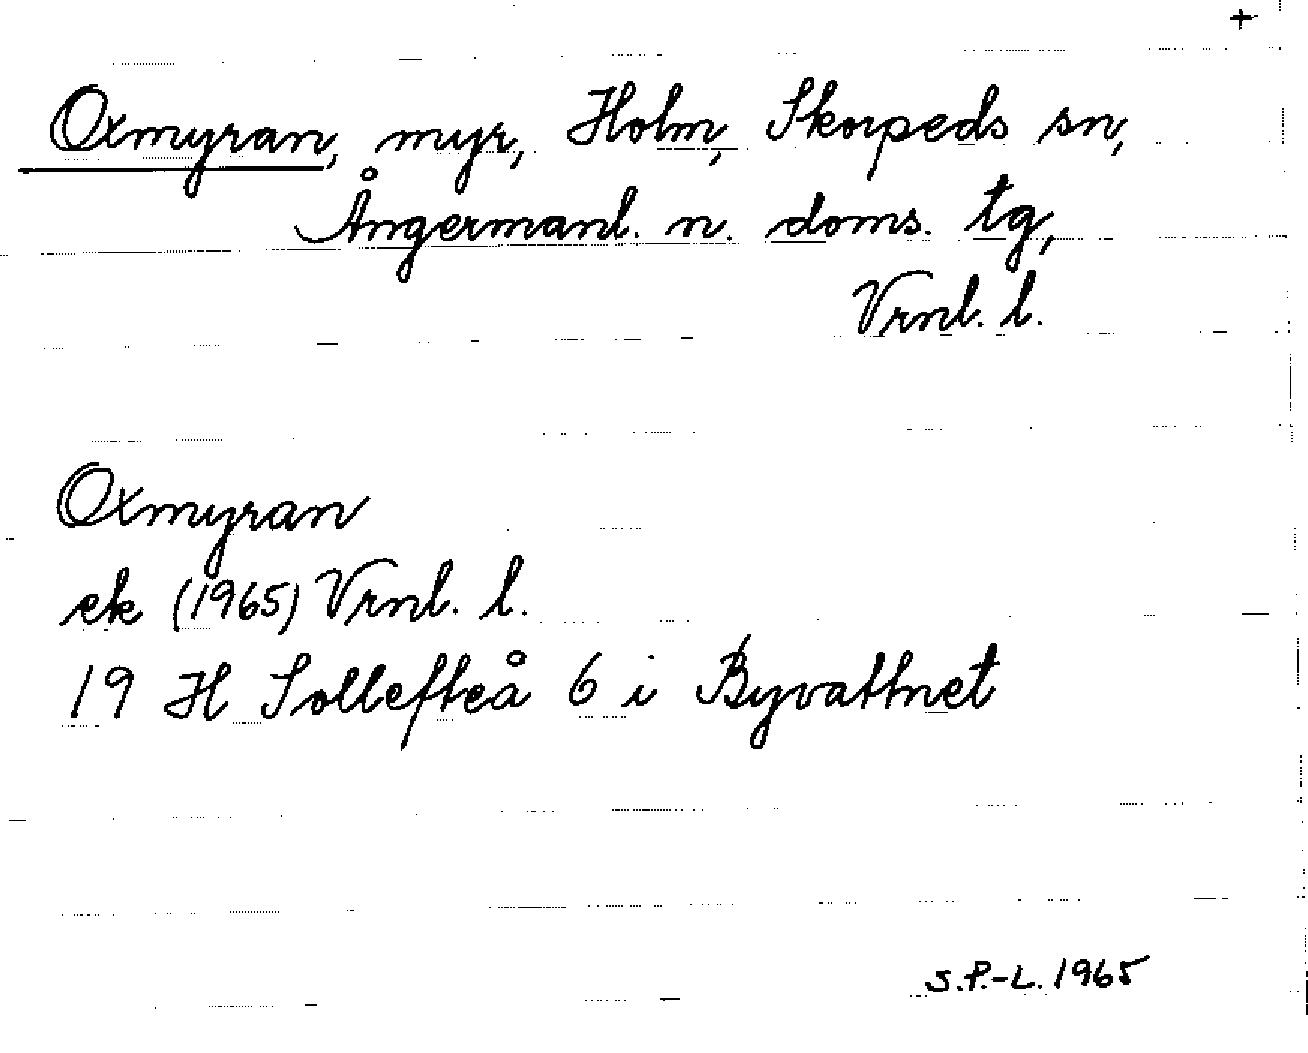 +
Oxmyran, myr, Holm, Skorpeds sn,
Ångermanl. n. doms. tg,
Vrnl. l.
Oxmyran
ek (1965) Vrnl. l.
19 H Sollefteå 6 i Byvattnet
S.P.-L. 1965